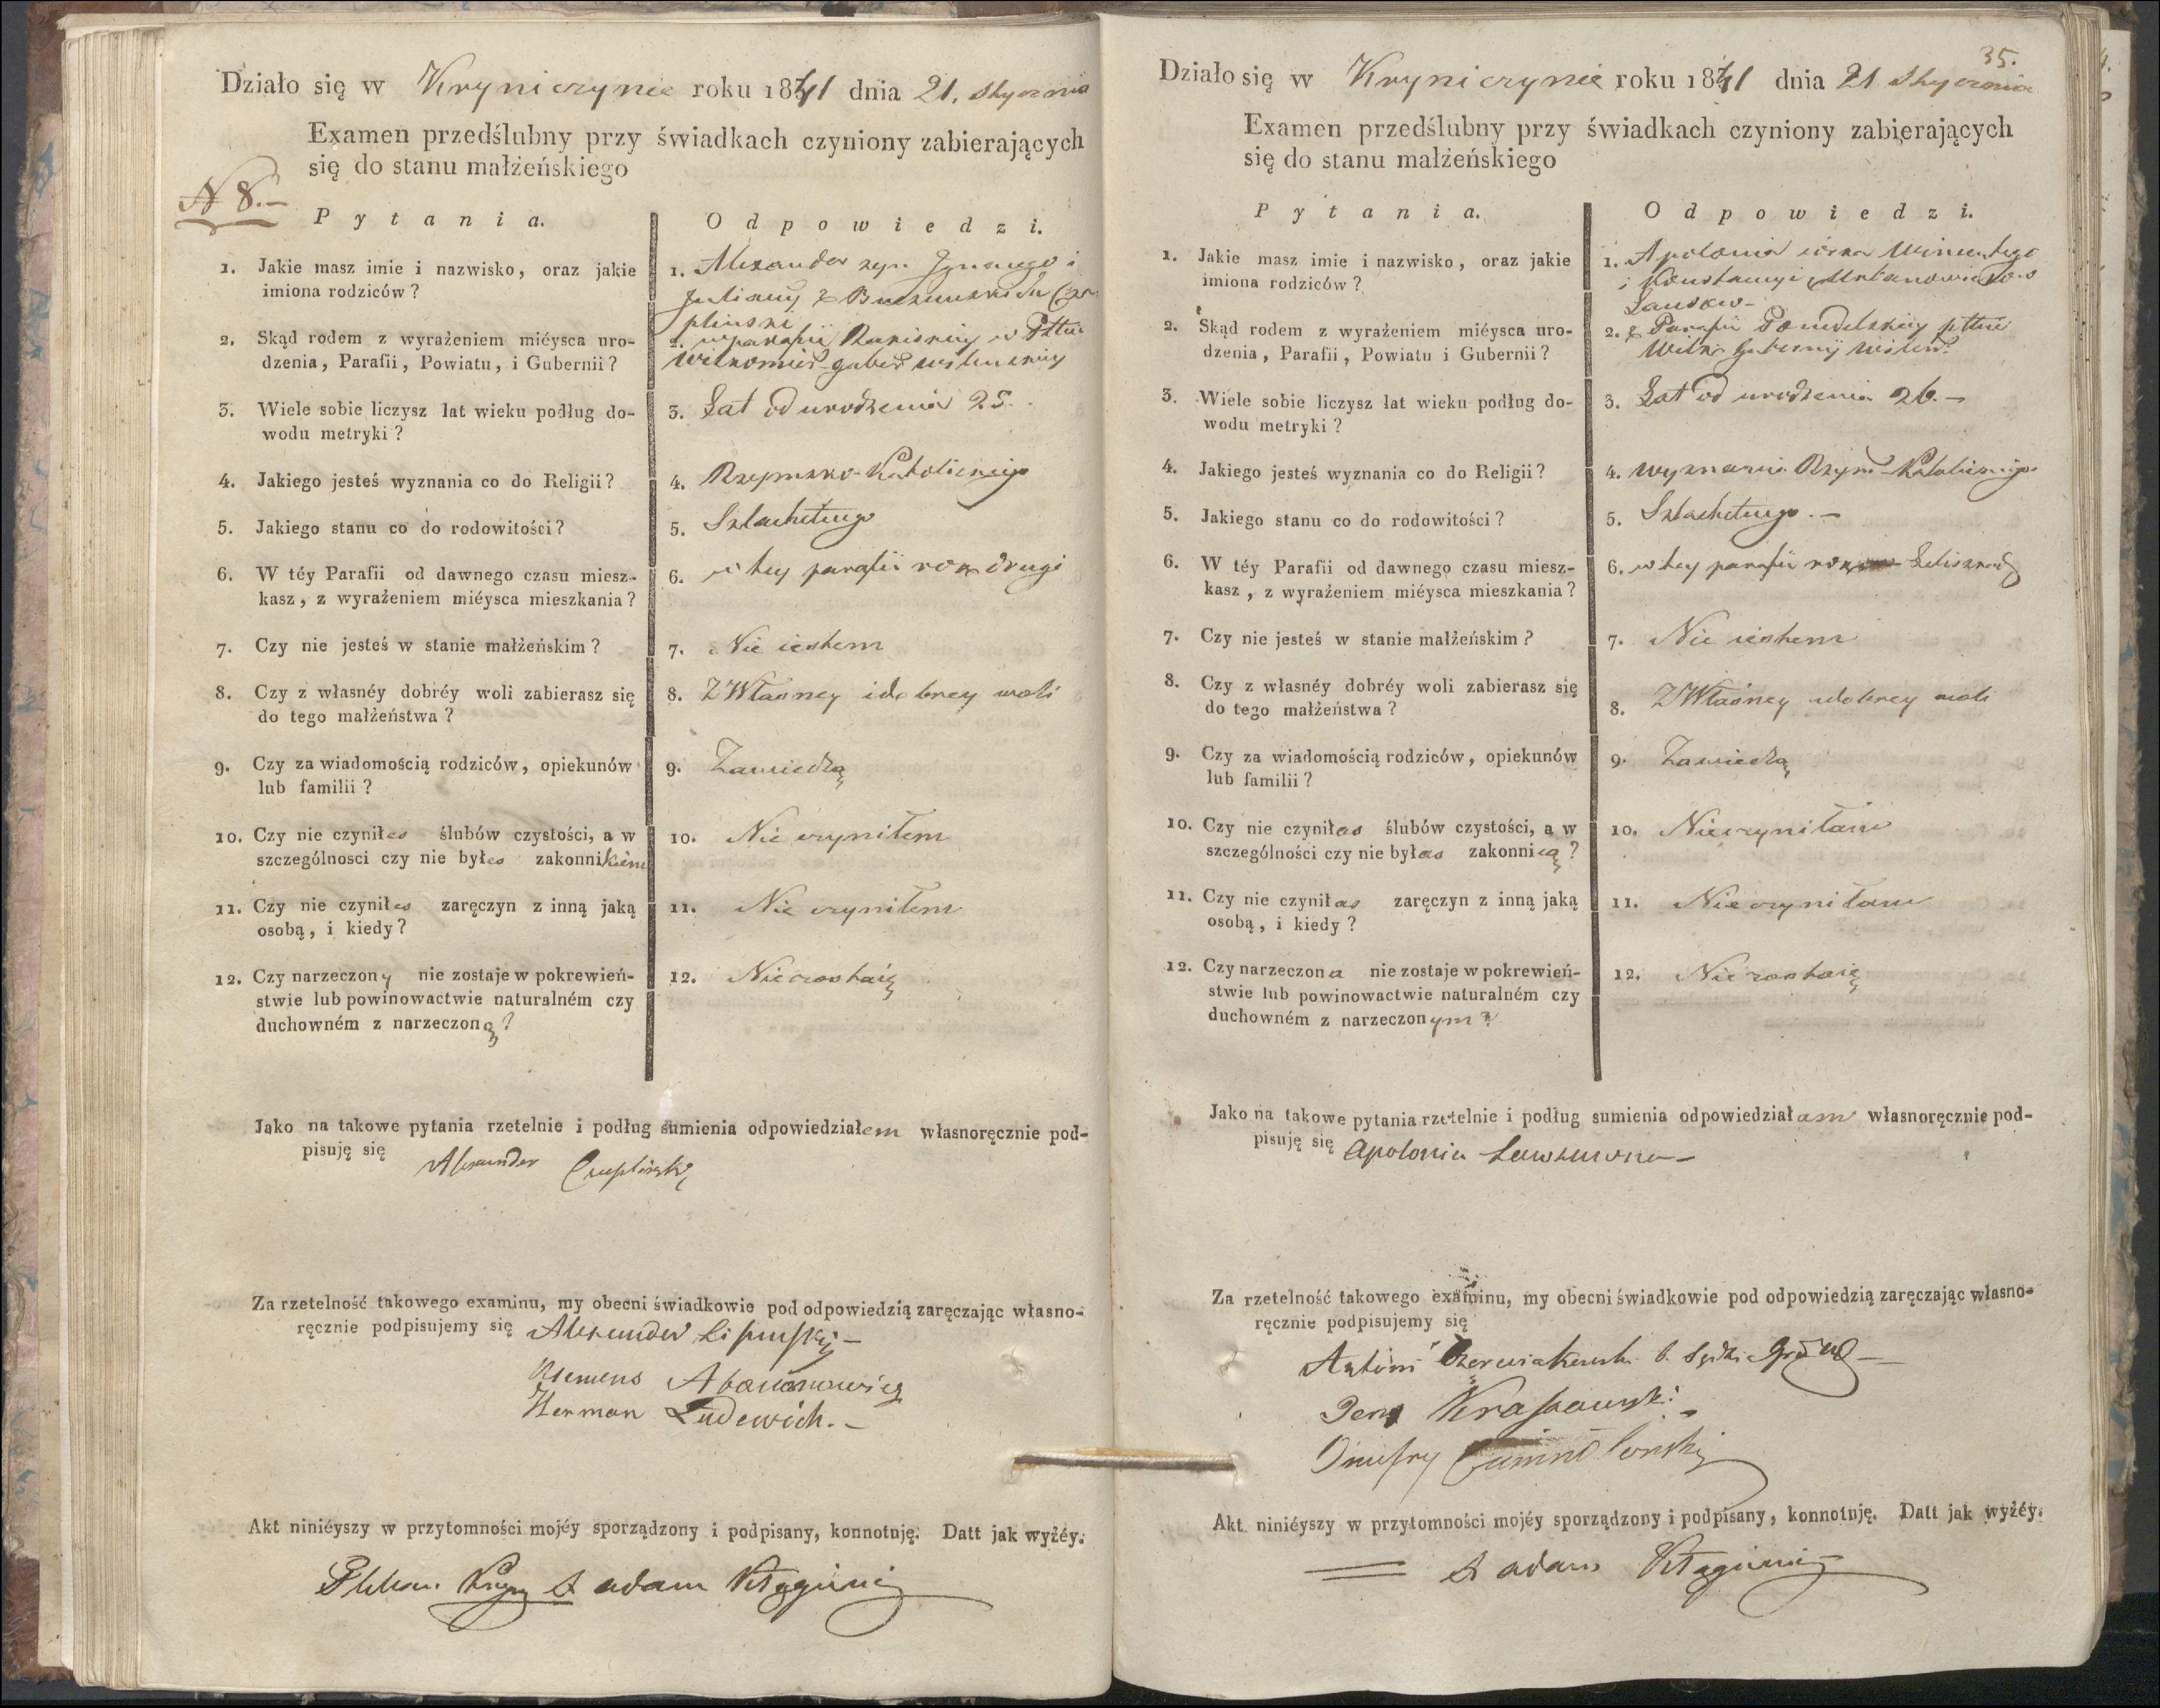 Działo się w Kryniczynie roku 1841 dnia 21. Stycznia
Examen przedślubny przy świadkach czyniony zabierających
się do stanu małżeńskiego
N 8.—
Pytania.
Odpowiedzi.
1. Jakie masz imie i nazwisko, oraz jakie
imiona rodziców?
1. Alexander syn Ignacego i
Julianny z
pliński
2. Skąd rodem z wyrażeniem miéysca uro-
dzenia, Parafii, Powiatu, i Gubernii?
2. w parafii Rakiskiey w Pttu
Wiłkomier guber Wileńskiey
3. Wiele sobie liczysz lat wieku podług do-
wodu metryki?
3. Lat od urodzenia 25.
4. Jakiego jesteś wyznania co do Religii?
4. Rzymsko-Katolickiego
5. Jakiego stanu co do rodowitości?
5. Szlachetnego
6. W téy Parafii od dawnego czasu miesz-
kasz, z wyrażeniem miéysca mieszkania?
6. w tey parafii rok drugi
7. Czy nie jesteś w stanie małżeńskim?
7. Nie iestem
8. Czy z własnéy dobréy woli zabierasz się
do tego małżeństwa?
8. Z Własney i dobrey woli
9. Czy za wiadomością rodziców, opiekunów
lub familii?
9. Zawiedzą
10. Czy nie czyniłes ślubów czystości, a w
szczególnosci czy nie byłes zakonnikiem
10. Nie czyniłem
11. Czy nie czyniłes zaręczyn z inną jaką
osobą, i kiedy?
11. Nie czyniłem
12. Czy narzeczony nie zostaje w pokrewień-
stwie lub powinowactwie naturalném czy
duchowném z narzeczoną?
12. Nie zostaię
Jako na takowe pytania rzetelnie i podług sumienia odpowiedziałem własnoręcznie pod-
pisuję się Alexander Czaplinski
Za rzetelność takowego examinu, my obecni świadkowie pod odpowiedzią zaręczając własno-
ręcznie podpisujemy się Alexander
Klemens
Herman Ludewich.—
Akt niniéyszy w przytomności mojéy sporządzony i podpisany, konnotuję. Datt jak wyżéy.
X adam
35.
Działo się w Kryniczynie roku 1841 dnia 21 Stycznia
Examen przedślubny przy świadkach czyniony zabierających
się do stanu małżeńskiego
Pytania.
Odpowiedzi.
1. Jakie masz imie i nazwisko, oraz jakie
imiona rodziców?
1. Apolonia córka Wincentego
i Konstancyi
2. Skąd rodem z wyrażeniem miéysca uro-
dzenia, Parafii, Powiatu i Gubernii?
2. z Parafii Ponedelskiey pttu
Wiłko Gubernij Wilen.
3. Wiele sobie liczysz lat wieku podług do-
wodu metryki?
3. Lat od urodzenia 26.—
4. Jakiego jesteś wyznania co do Religii?
4. wyznania Rzym-Katolickiego
5. Jakiego stanu co do rodowitości?
5. Szlachetnego.—
6. W téy Parafii od dawnego czasu miesz-
kasz, z wyrażeniem miéysca mieszkania?
6. w tey parafii
7. Czy nie jesteś w stanie małżeńskim?
7. Nie iestem
8. Czy z własnéy dobréy woli zabierasz się
do tego małżeństwa?
8. Z Własney i dobrey woli
9. Czy za wiadomością rodziców, opiekunów
lub familii?
9. Zawiedzą
10. Czy nie czyniłas ślubów czystości, a w
szczególności czy nie byłas zakonnicą?
10. Nie czyniłam
11. Czy nie czyniłas zaręczyn z inną jaką
osobą, i kiedy?
11. Nie czyniłam
12. Czy narzeczona nie zostaje w pokrewień-
stwie lub powinowactwie naturalném czy
duchowném z narzeczonym?
12. Nie zostaię
Jako na takowe pytania rzetelnie i podług sumienia odpowiedziałam własnoręcznie pod-
pisuję się Apolonia
Za rzetelność takowego examinu, my obecni świadkowie pod odpowiedzią zaręczając własno-
ręcznie podpisujemy się
Antoni
Krassowski
Onufry
Akt niniéyszy w przytomności mojéy sporządzony i podpisany, konnotuję. Datt jak wyżéy.
X adam